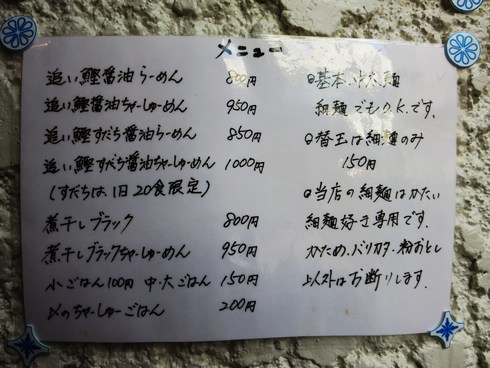 メニュー
追い鰹醤油らーめん 800円
追い鰹醤油ちゃーしゅーめん 950円
追い鰹すだち醤油らーめん 850円
追い鰹すだち醤油ちゃーしゅーめん 1000円
(すだちは、1日20食限定)
煮干しブラック 800円
煮干しブラックちゃーしゅーめん 950円
小ごはん100円 中・大ごはん 150円
〆のちゃーしゅーごはん 200円
◎基本、中太麺
細麺でもO.K.です。
◎替玉は細麺のみ
150円
◎当店の細麺はかたい
細麺好き専用です。
かため、バリカタ・粉おとし
以外はお断りします。